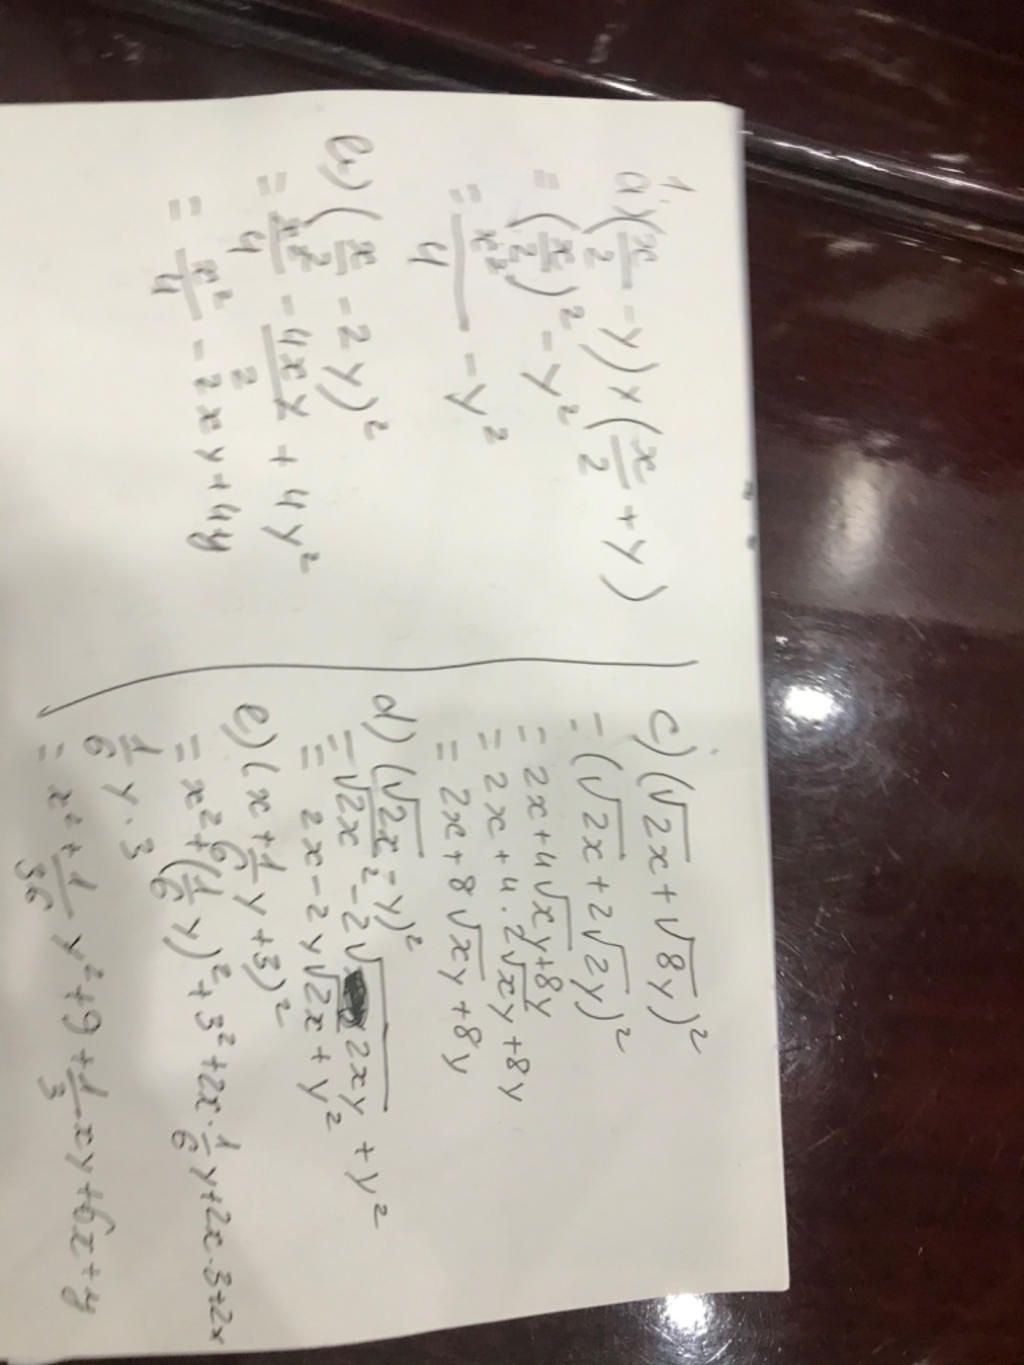 1.
a) (x/2 - y) x (x/2 + y)
= (x/2)² - y²
= x²/4 - y²
b) (x/2 - 2y)²
= x²/4 - 4xy/2 + 4y²
= x²/4 - 2xy + 4y
c) (√2x + √8y)²
= (√2x + 2√2y)²
= 2x + 4√xy + 8y
= 2x + 4.2√xy + 8y
= 2x + 8√xy + 8y
d) (√2x - y)²
= √2x² - 2√2xy + y²
= 2x - 2y√2x + y²
e) (x + 1/6 y + 3)²
= x² + (1/6 y)² + 3² + 2x.1/6 y + 2x.3 + 2x
1/6 y.3
= x² + 1/36 y² + 9 + 1/3 xy + 6x + y